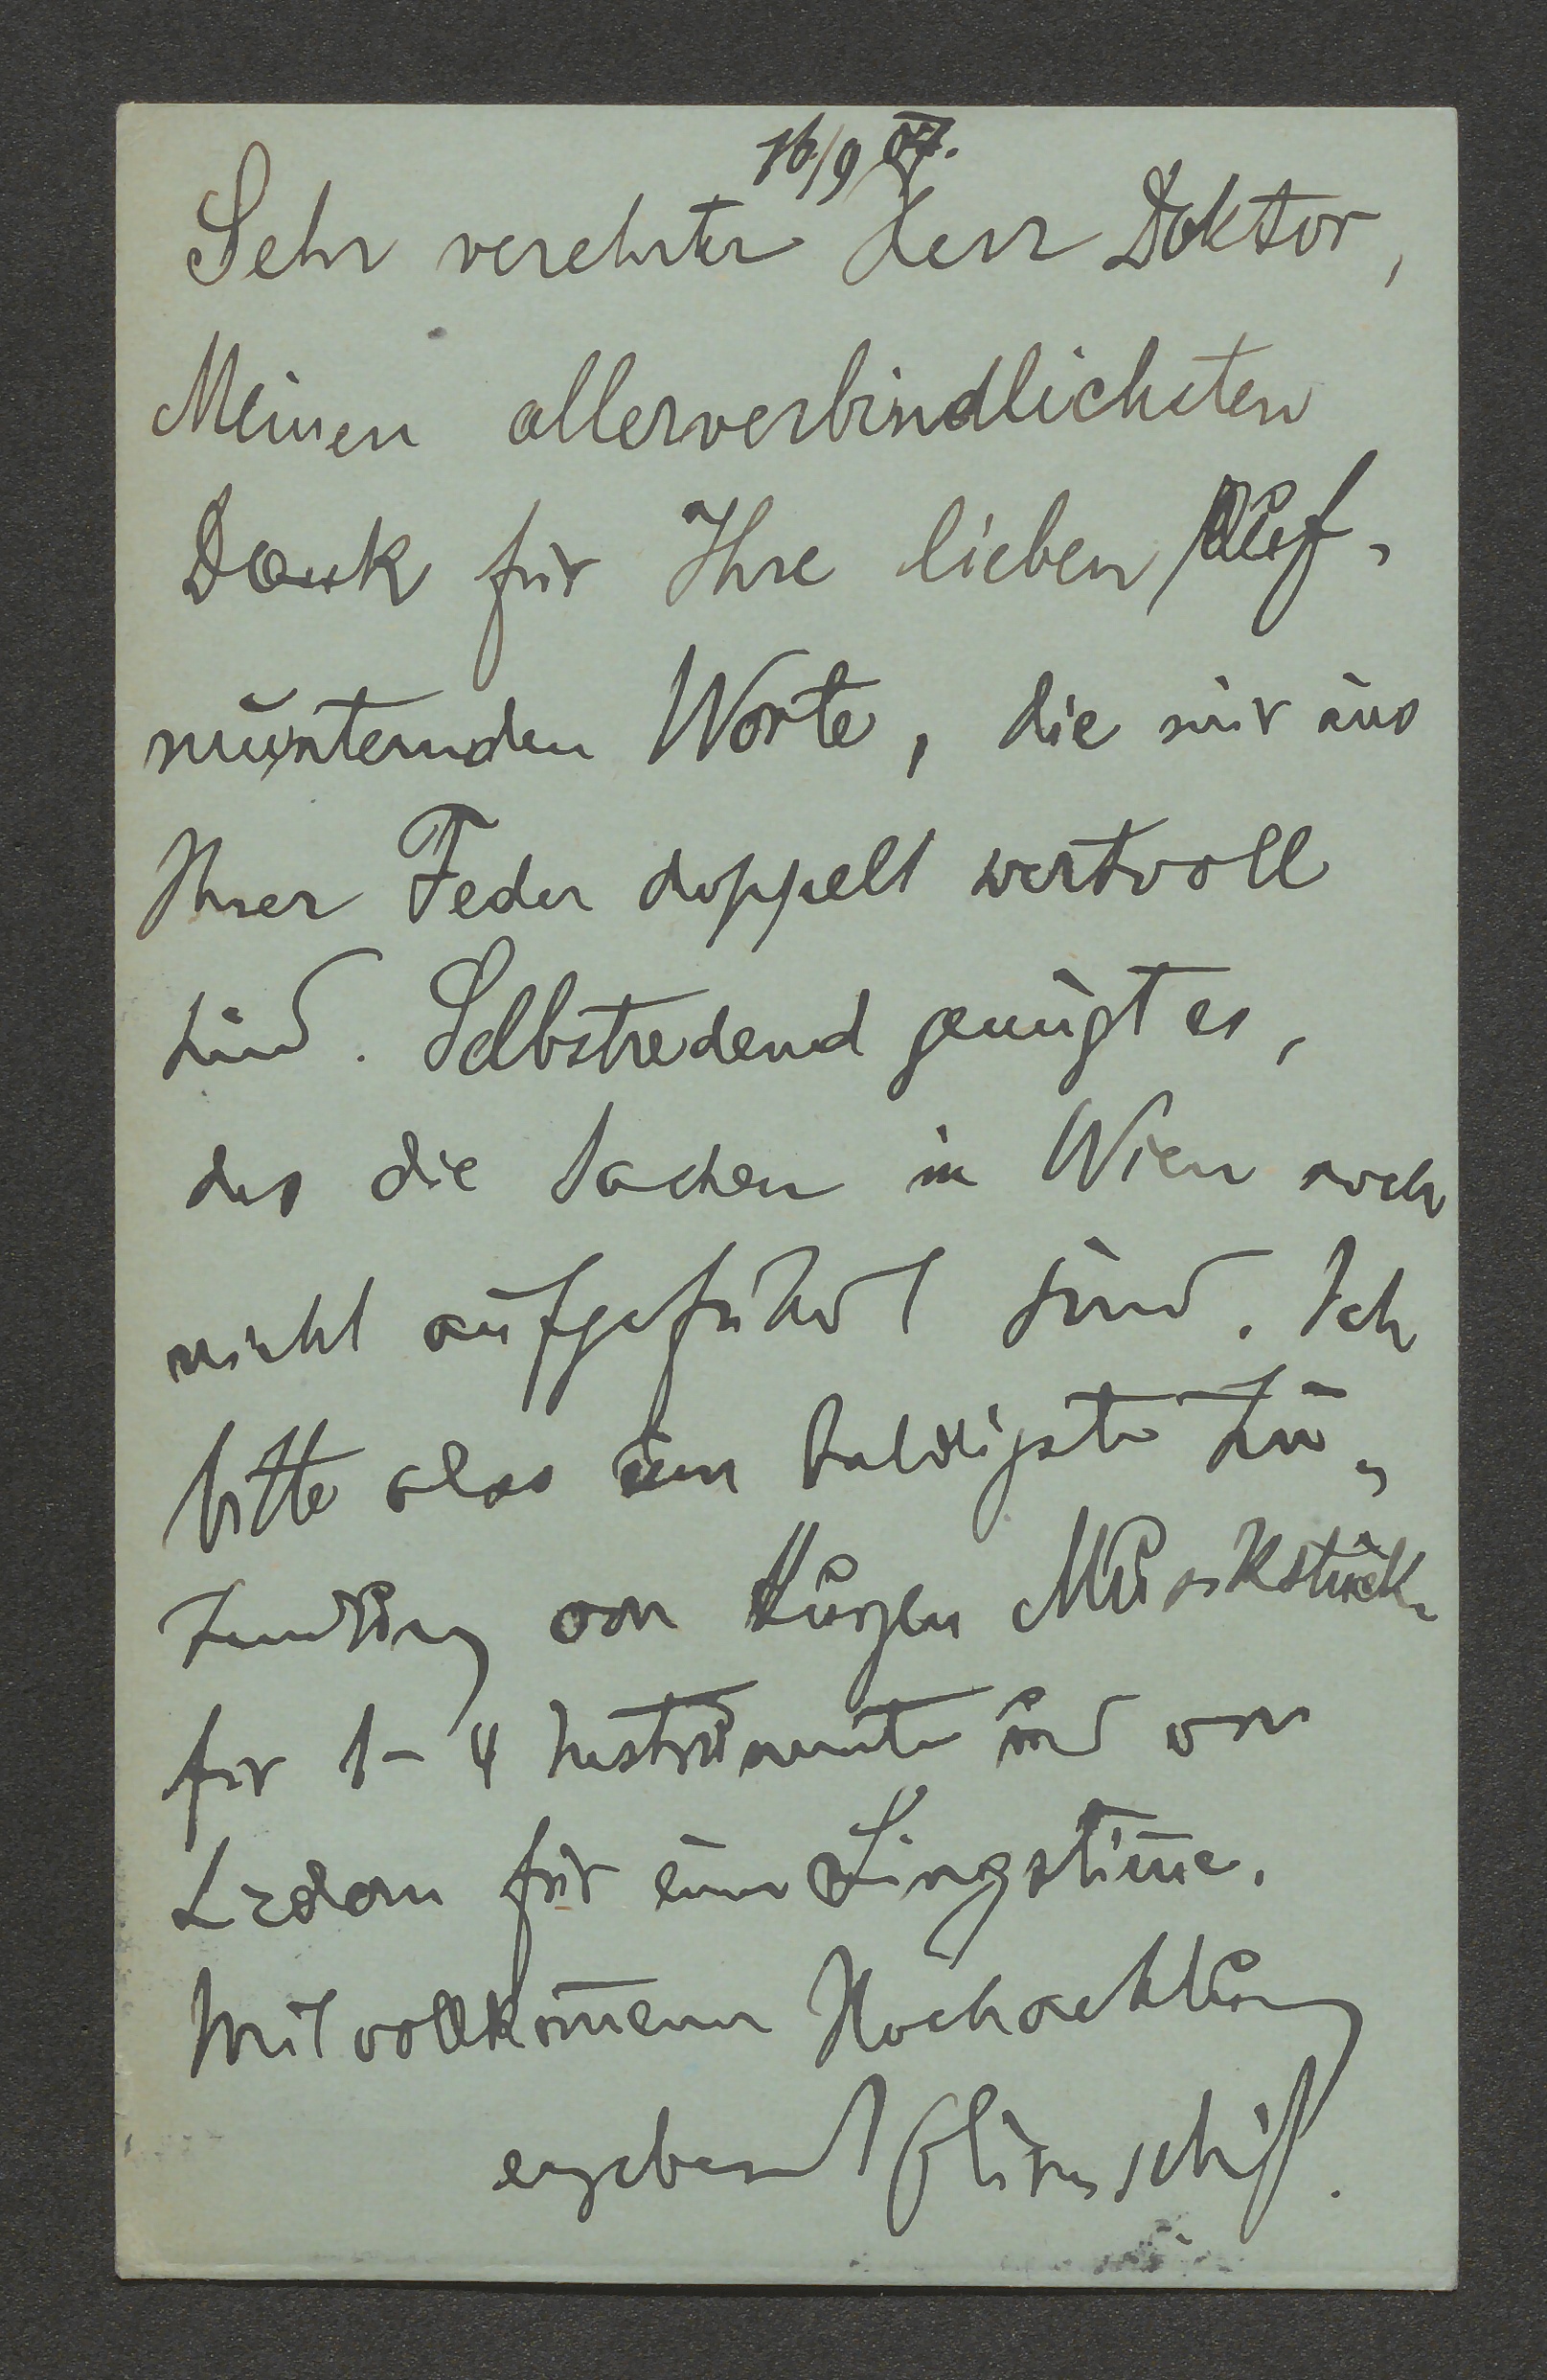 16/9 07.
Sehr verehrter Herr Doktor,
Meinen allerverbindlichsten
Dank für Ihre lieben Auf-
munternden Worte, die mir aus
Ihrer Feder doppelt wertvoll
sind. Selbstredend genügt es,
das die Sachen in Wien noch
nicht aufgeführt sind. Ich
bitte also um baldigste Zu-
sendung von kurzen Musikstücke
für 1-4 Instrumente und von
Liedern für eine Singstim̅e.
Mit vollkom̅ener Hochachtung
ergebenst